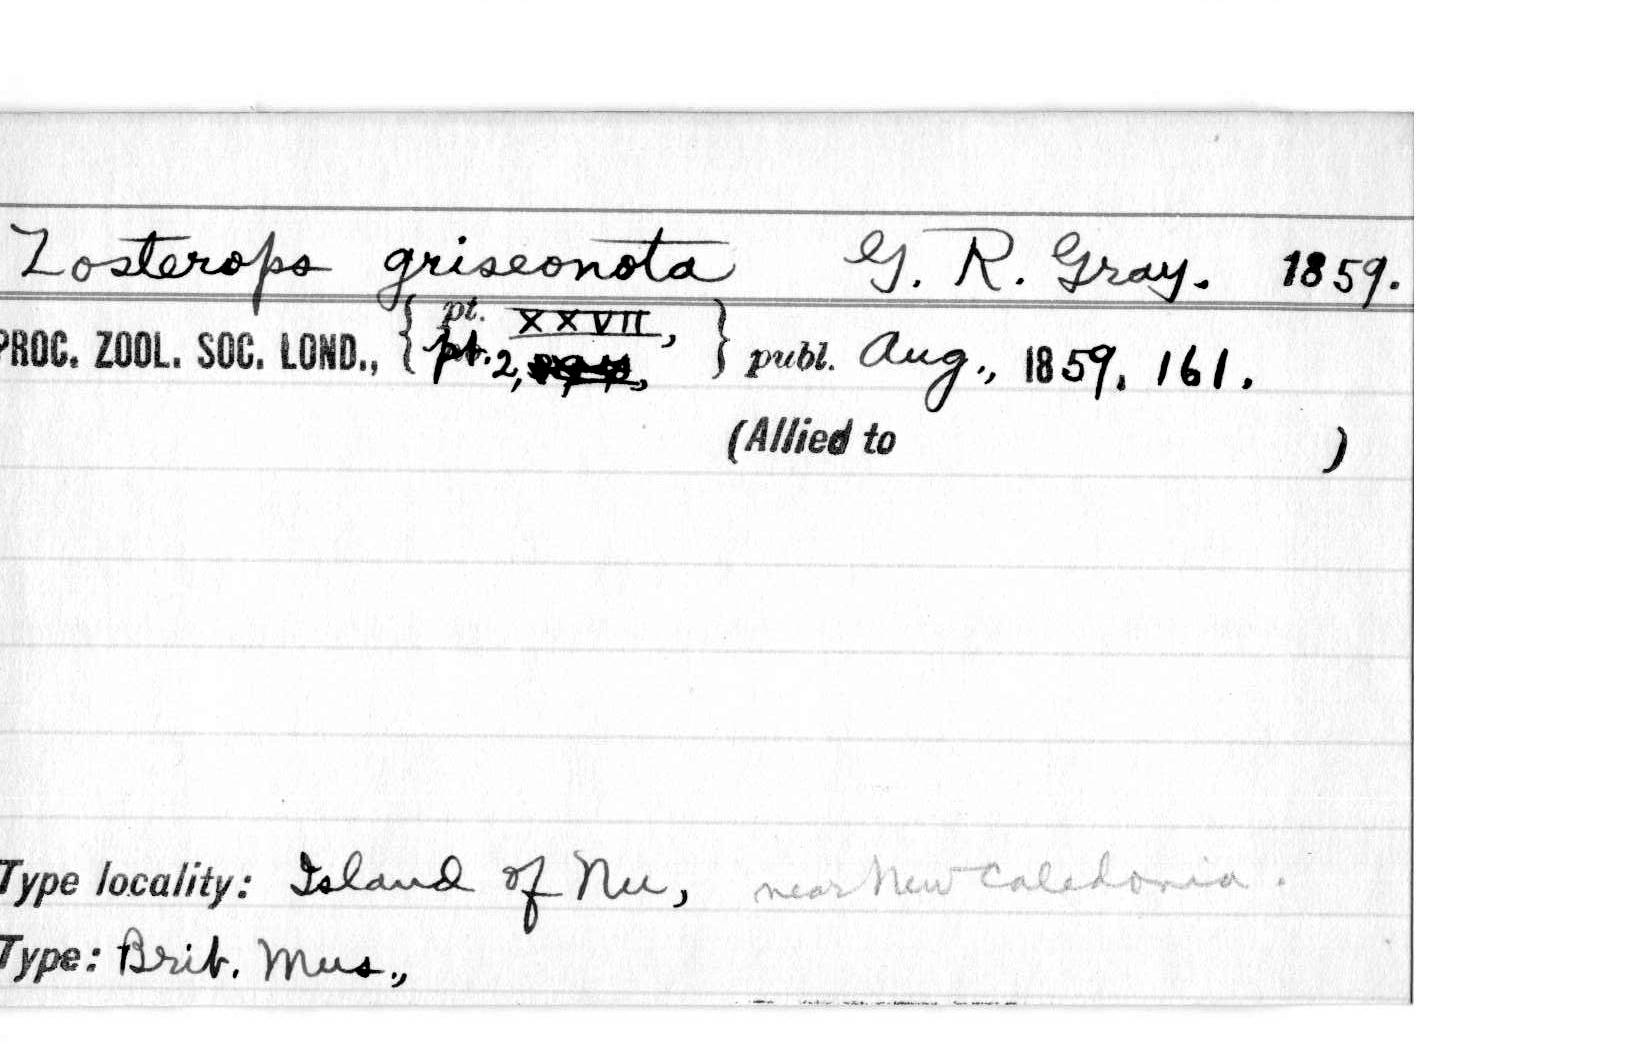 Zosterops griseonota G. R. Gray. 1859.
PROC. ZOOL. SOC. LOND., { pt. XXVII, pt. 2, } publ. Aug., 1859, 161.
(Allied to )
Type locality: Island of Nu, near New Caledonia.
Type: Brit. Mus.,